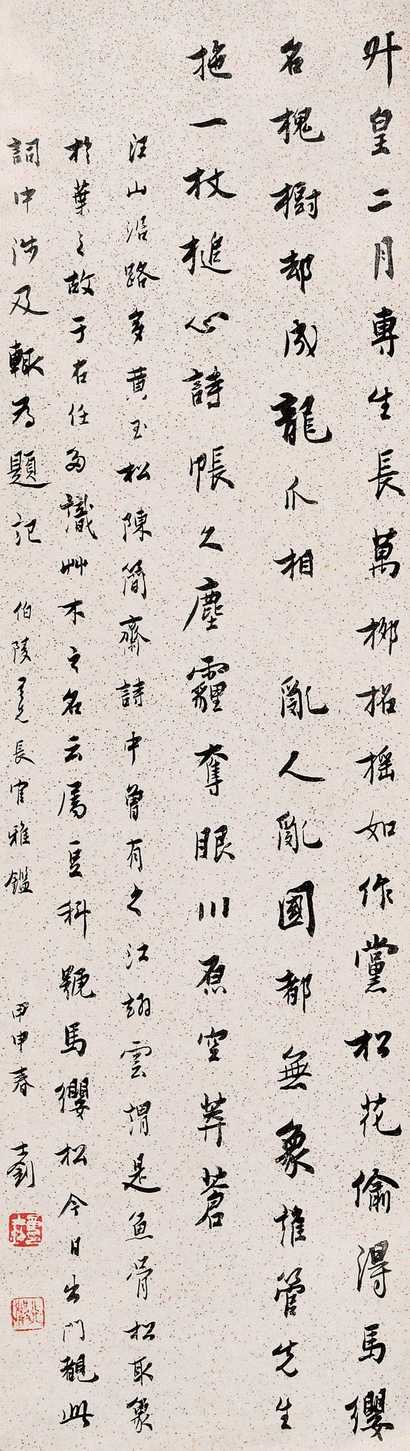 廾皇二月專生長萬栁招搖如作黨松花偷得馬纓
名槐樹却成龍爪相 亂人亂國都無象誰管先生
拖一杖搥心詩帳久塵霾奪眼川原空莽蒼
汪山沿路多黃玉松陳簡齋詩中曾有之江翊雲謂是魚骨松取象
於葉之故于右任多識艸木之名云屬豆科號馬纓松今日出門觀此
詞中涉及輒為題記 伯陵
長官雅鑑 甲申春 士釗